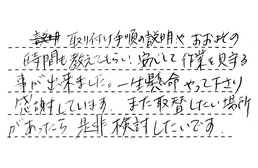 取り付け手順の説明や おおよその
時間も教えてもらい 安心して 作業を見守る
事が出来ました。一生懸命 やって下さり
感謝しています。また取替したい場所
があったら 是非 検討したいです。